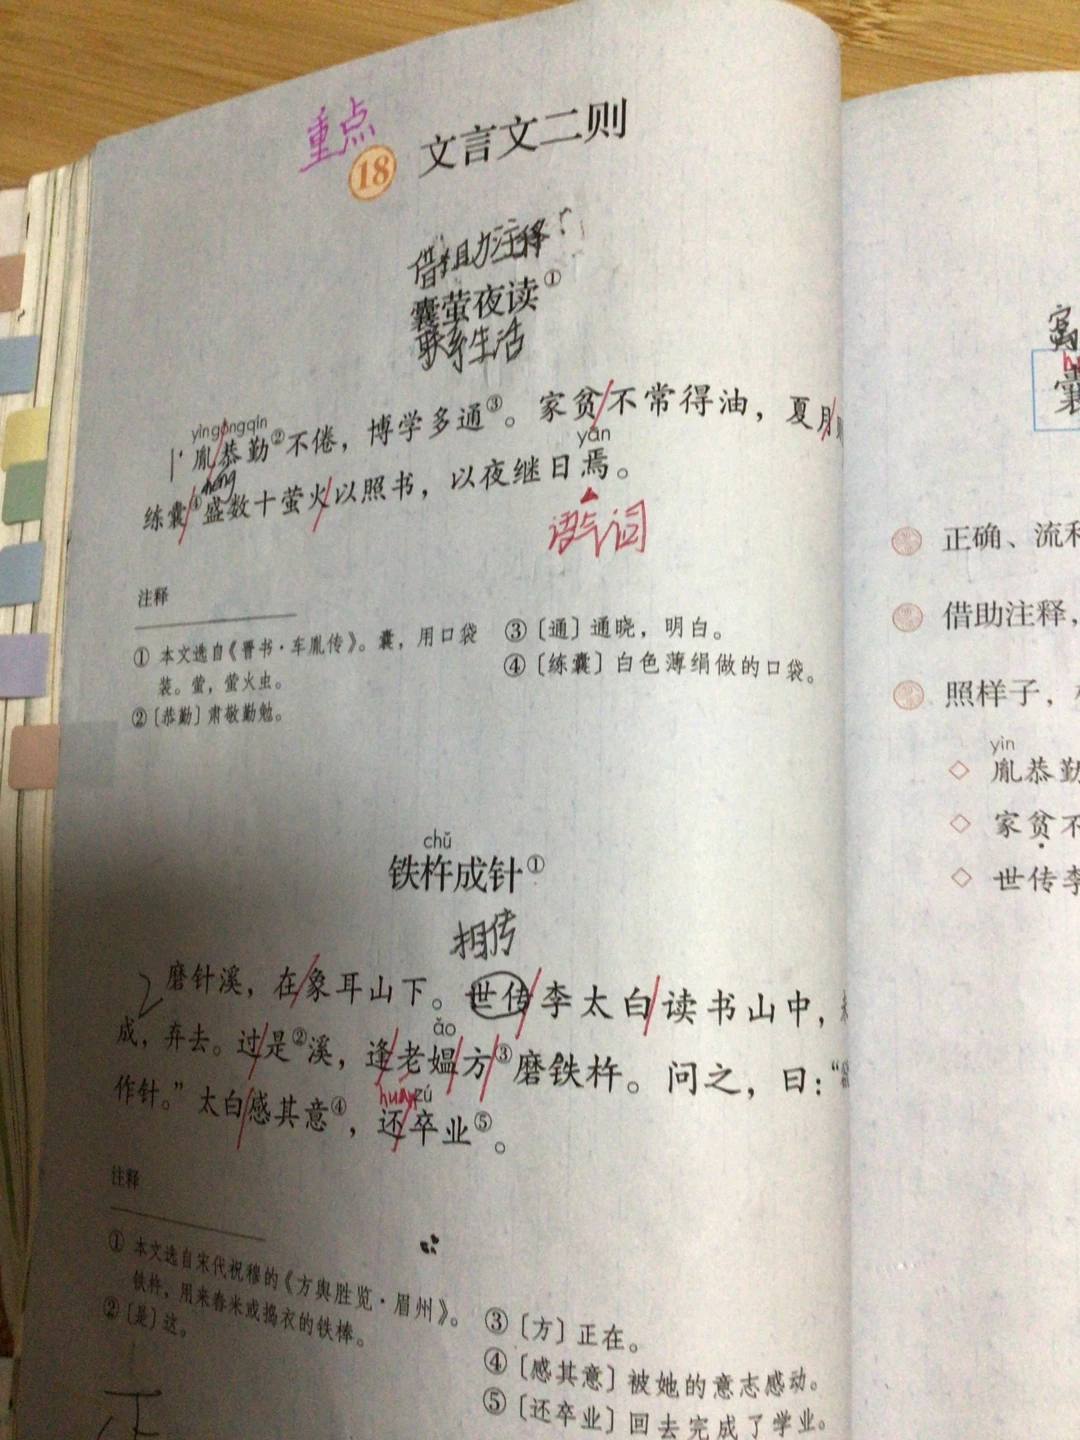 重点
18 文言文二则
借助注释
囊萤夜读①
联系生活
yìn gōng qín
胤恭勤②不倦，博学多通③。家贫不常得油，夏月
chéng
yān
练囊④盛数十萤火以照书，以夜继日焉。
语气词
注释
① 本文选自《晋书·车胤传》。囊，用口袋
装。萤，萤火虫。
② 〔恭勤〕肃敬勤勉。
③ 〔通〕通晓，明白。
④ 〔练囊〕白色薄绢做的口袋。
chǔ
铁杵成针①
相传
磨针溪，在象耳山下。世传李太白读书山中，
ǎo
成，弃去。过是②溪，逢老媪方③磨铁杵。问之，曰：“
huán zú
作针。”太白感其意④，还卒业⑤。
注释
① 本文选自宋代祝穆的《方舆胜览·眉州》。
铁杵，用来舂米或捣衣的铁棒。
② 〔是〕这。
③ 〔方〕正在。
④ 〔感其意〕被她的意志感动。
⑤ 〔还卒业〕回去完成了学业。
囊
正确、流利
借助注释，
照样子，
yìn
◇ 胤恭勤
◇ 家贫不
◇ 世传李